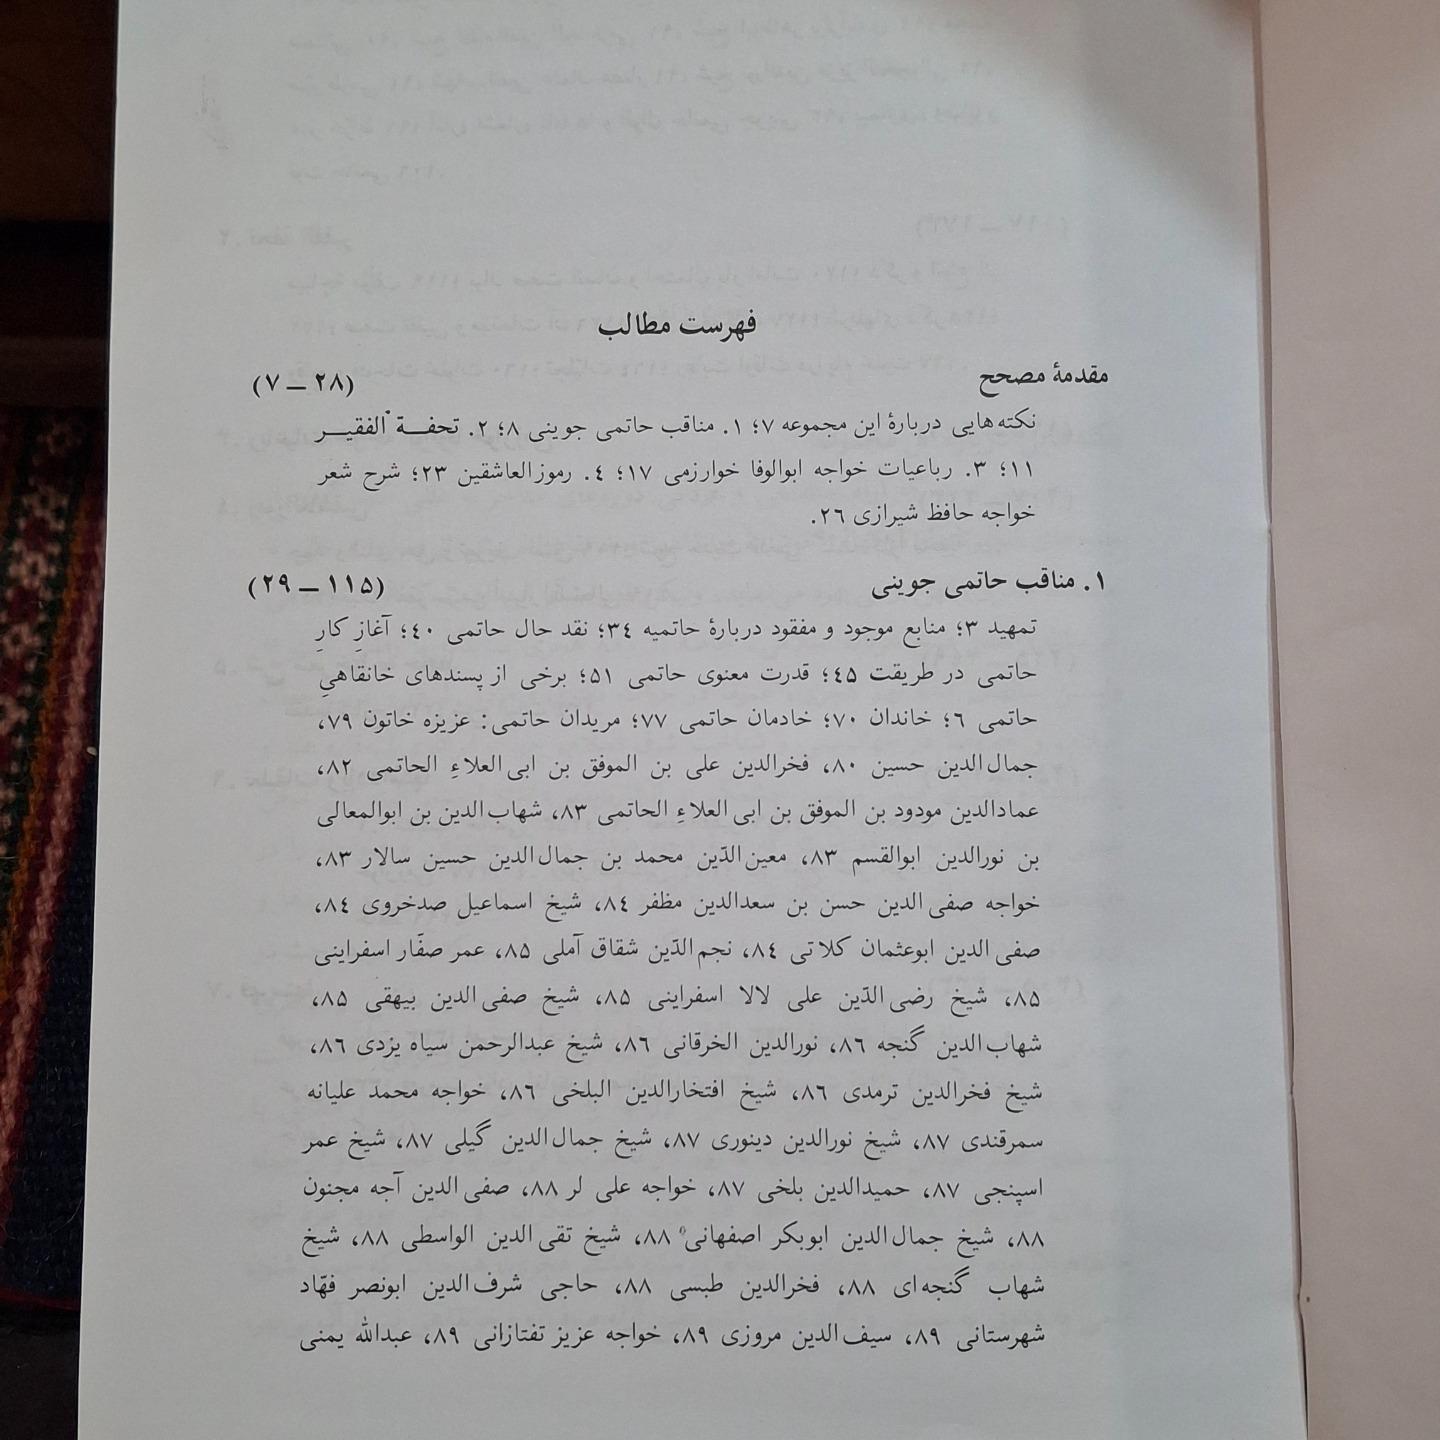 فهرست مطالب
مقدمهٔ مصحح (۷ ـ ۲۸)
نکته‌هایی دربارهٔ این مجموعه ۷؛ ۱. مناقب حاتمی جوینی ۸؛ ۲. تحفـة الفقیـر
۱۱؛ ۳. رباعیات خواجه ابوالوفا خوارزمی ۱۷؛ ٤. رموزالعاشقین ۲۳؛ شرح شعر
خواجه حافظ شیرازی ۲٦.
۱. مناقب حاتمی جوینی (۲۹ ـ ۱۱۵)
تمهید ۳؛ منابع موجود و مفقود دربارهٔ حاتمیه ۳٤؛ نقد حال حاتمی ٤۰؛ آغازِ کارِ
حاتمی در طریقت ٤۵؛ قدرت معنوی حاتمی ۵۱؛ برخی از پسندهای خانقاهیِ
حاتمی ٦؛ خاندان ۷۰؛ خادمان حاتمی ۷۷؛ مریدان حاتمی: عزیزه خاتون ۷۹،
جمال‌الدین حسین ۸۰، فخرالدین علی بن الموفق بن ابی العلاءِ الحاتمی ۸۲،
عمادالدین مودود بن الموفق بن ابی العلاءِ الحاتمی ۸۳، شهاب‌الدین بن ابوالمعالی
بن نورالدین ابوالقسم ۸۳، معین‌الدّین محمد بن جمال‌الدین حسین سالار ۸۳،
خواجه صفی‌الدین حسن بن سعدالدین مظفر ۸٤، شیخ اسماعیل صدخروی ۸٤،
صفی‌الدین ابوعثمان کلاتی ۸٤، نجم‌الدّین شقاق آملی ۸۵، عمر صفّار اسفراینی
۸۵، شیخ رضی‌الدّین علی لالا اسفراینی ۸۵، شیخ صفی‌الدین بیهقی ۸۵،
شهاب‌الدین گنجه ۸٦، نورالدین الخرقانی ۸٦، شیخ عبدالرحمن سیاه یزدی ۸٦،
شیخ فخرالدین ترمدی ۸٦، شیخ افتخارالدین البلخی ۸٦، خواجه محمد علیانه
سمرقندی ۸۷، شیخ نورالدین دینوری ۸۷، شیخ جمال‌الدین گیلی ۸۷، شیخ عمر
اسپنجی ۸۷، حمیدالدین بلخی ۸۷، خواجه علی لر ۸۸، صفی‌الدین آجه مجنون
۸۸، شیخ جمال‌الدین ابوبکر اصفهانی ۸۸، شیخ تقی‌الدین الواسطی ۸۸، شیخ
شهاب گنجه‌ای ۸۸، فخرالدین طبسی ۸۸، حاجی شرف‌الدین ابونصر فهّاد
شهرستانی ۸۹، سیف‌الدین مروزی ۸۹، خواجه عزیز تفتازانی ۸۹، عبدالله یمنی